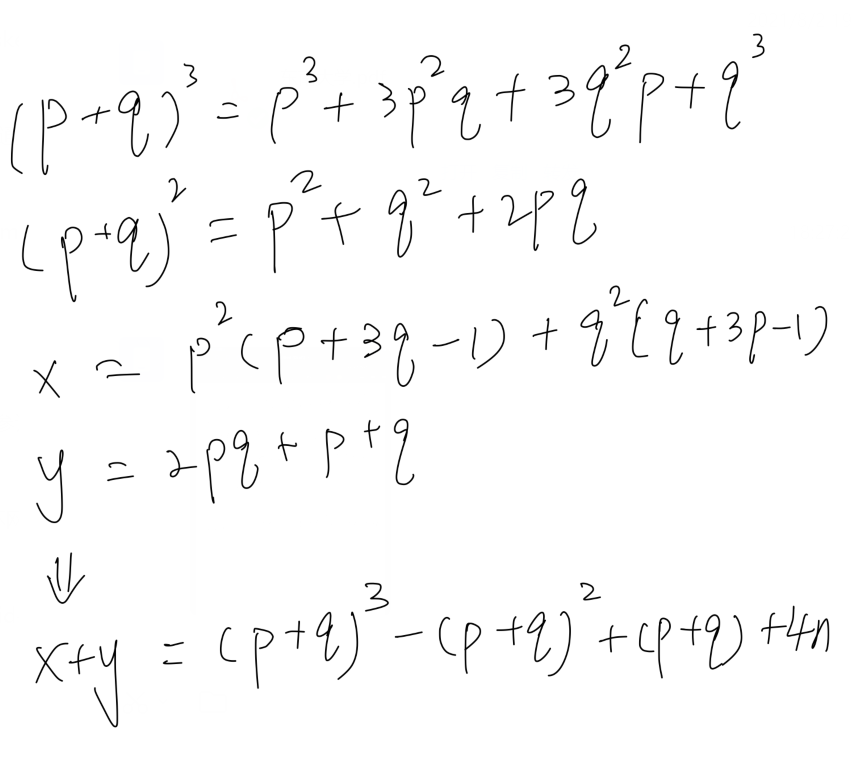 (p+q)³ = p³ + 3p²q + 3q²p + q³
(p+q)² = p² + q² + 2pq
x = p²(p+3q-1) + q²(q+3p-1)
y = 2pq + p + q
⇓
x+y = (p+q)³ - (p+q)² + (p+q) + 4n